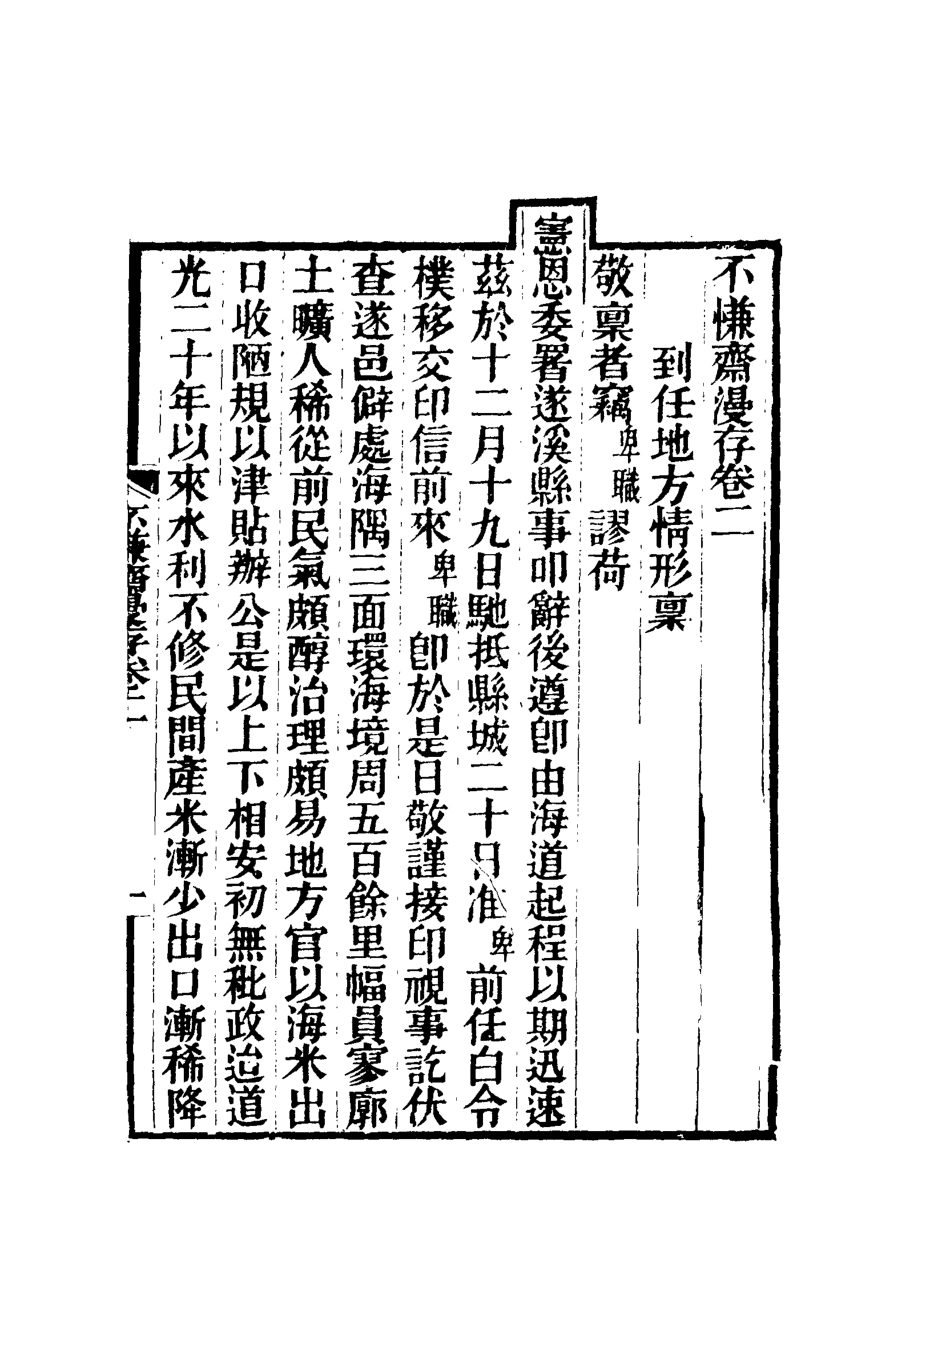 不慊齋漫存卷二
到任地方情形稟
敬稟者竊卑職謬荷
憲恩委署遂溪縣事叩辭後遵卽由海道起程以期迅速
茲於十二月十九日馳抵縣城二十日准卑前任白令
樸移交印信前來卑職卽於是日敬謹接印視事訖伏
查遂邑僻處海隅三面環海境周五百餘里幅員寥廓
土曠人稀從前民氣頗醇治理頗易地方官以海米出
口收陋規以津貼辦公是以上下相安初無秕政迨道
光二十年以來水利不修民間產米漸少出口漸稀降
不慊齋漫存卷二
一